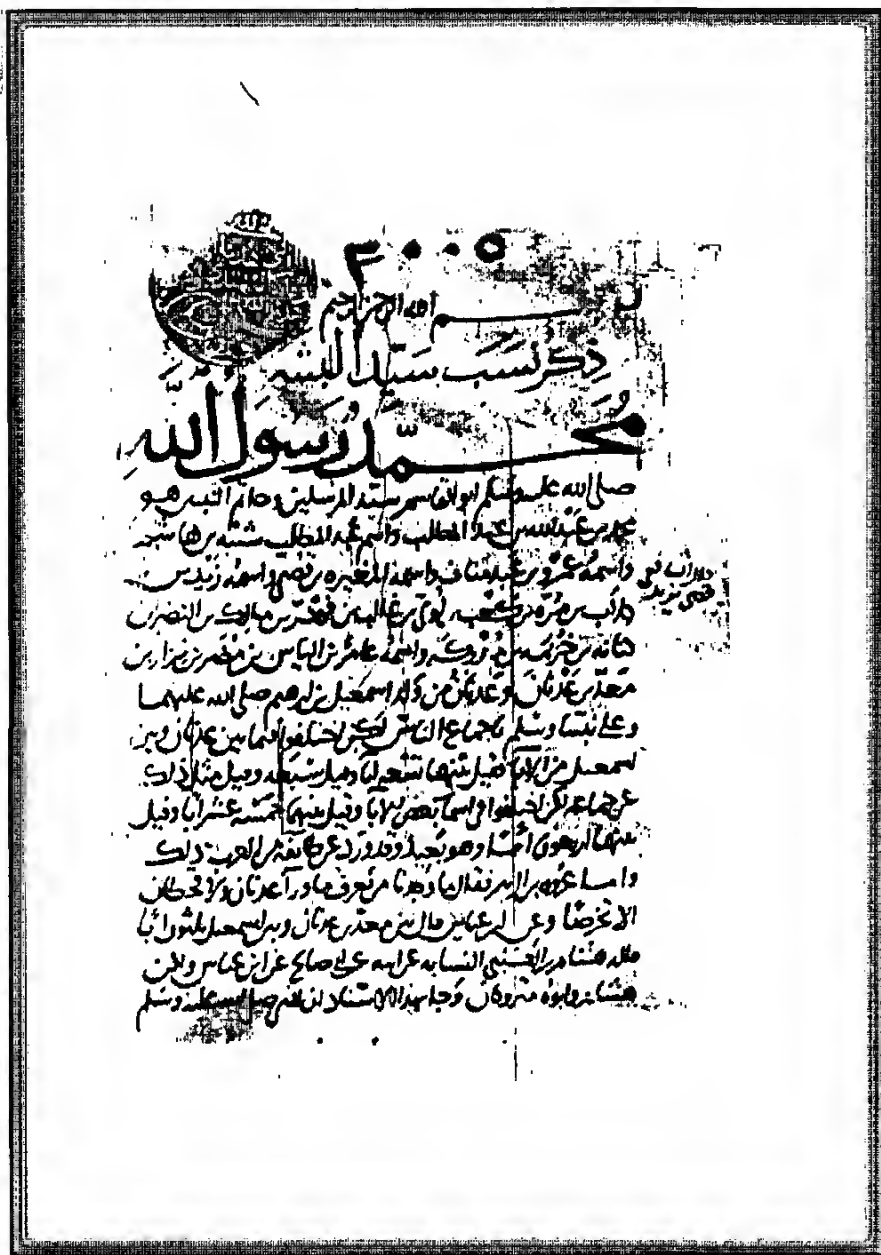 ٣٠٠٥
بسم الله الرحمن الرحيم
ذكر نسب سيد البشر
محمد رسول الله
صلى الله عليه وسلم ابو القاسم سيد المرسلين وخاتم النبيين هو
محمد بن عبد الله بن عبد المطلب واسم عبد المطلب شيبة بن هاشم
واسمه عمرو بن عبد مناف واسمه المغيرة بن قصي واسمه زيد بن
كلاب بن مرة بن كعب بن لؤي بن غالب بن فهر بن مالك بن النضر بن
كنانة بن خزيمة بن مدركة واسمه عامر بن الياس بن مضر بن نزار بن
معد بن عدنان وعدنان من ولد اسمعيل بن ابرهيم صلى الله عليهما
وعلى نبينا وسلم باجماع الناس لكن اختلفوا فيما بين عدنان وبين
اسمعيل من الآباء فقيل بينهما تسعة آبا وقيل سبعة وقيل مثل ذلك
عن جماعة لكن اختلفوا في اسما بعض الآبا وقيل بينهما خمسة عشر أبا وقيل
بينهما اربعون أبا وهو بعيد وقد ورد عن طائفة من العرب ذلك
واما عروة بن الزبير فقال ما وجدنا من يعرف ما ورآ عدنان ولا قحطان
الا تخرصا وعن ابن عباس قال بين معد بن عدنان وبين اسمعيل ثلثون أبا
قاله هشام بن الكلبي النسابه عن ابيه عن ابي صالح عن ابن عباس ولكن
هشام وابوه متروكان وجا بهذا الاسناد ان النبي صلى الله عليه وسلم